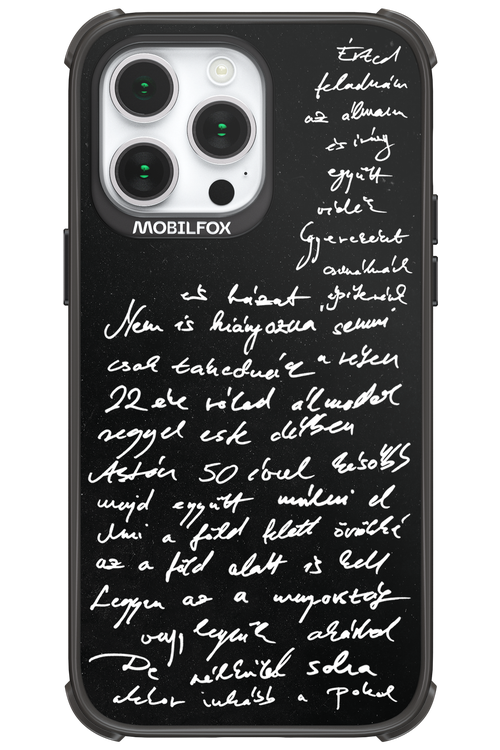 Érted
feladnám
az álmaim
és irány
együtt
vidék
Gyerekeket
csinálnánk
és házat építenénk
Nem is hiányozna semmi
csak takednánk a réten
22 éve rólad álmodok
reggel este délben
Aztán 50 évvel később
majd együtt múlni el
Ami a föld felett örökké
az a föld alatt is kell
Legyen az a mennyország
vagy legyünk akárhol
De nélküled soha
akkor inkább a pokol
MOBILFOX